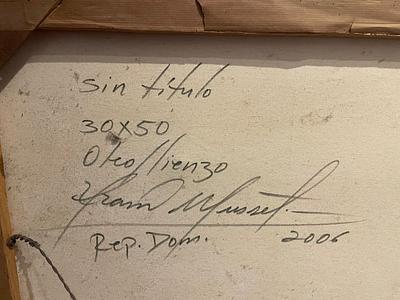 sin título
30x50
Oleo/lienzo
Musset.
Rep. Dom. 2006